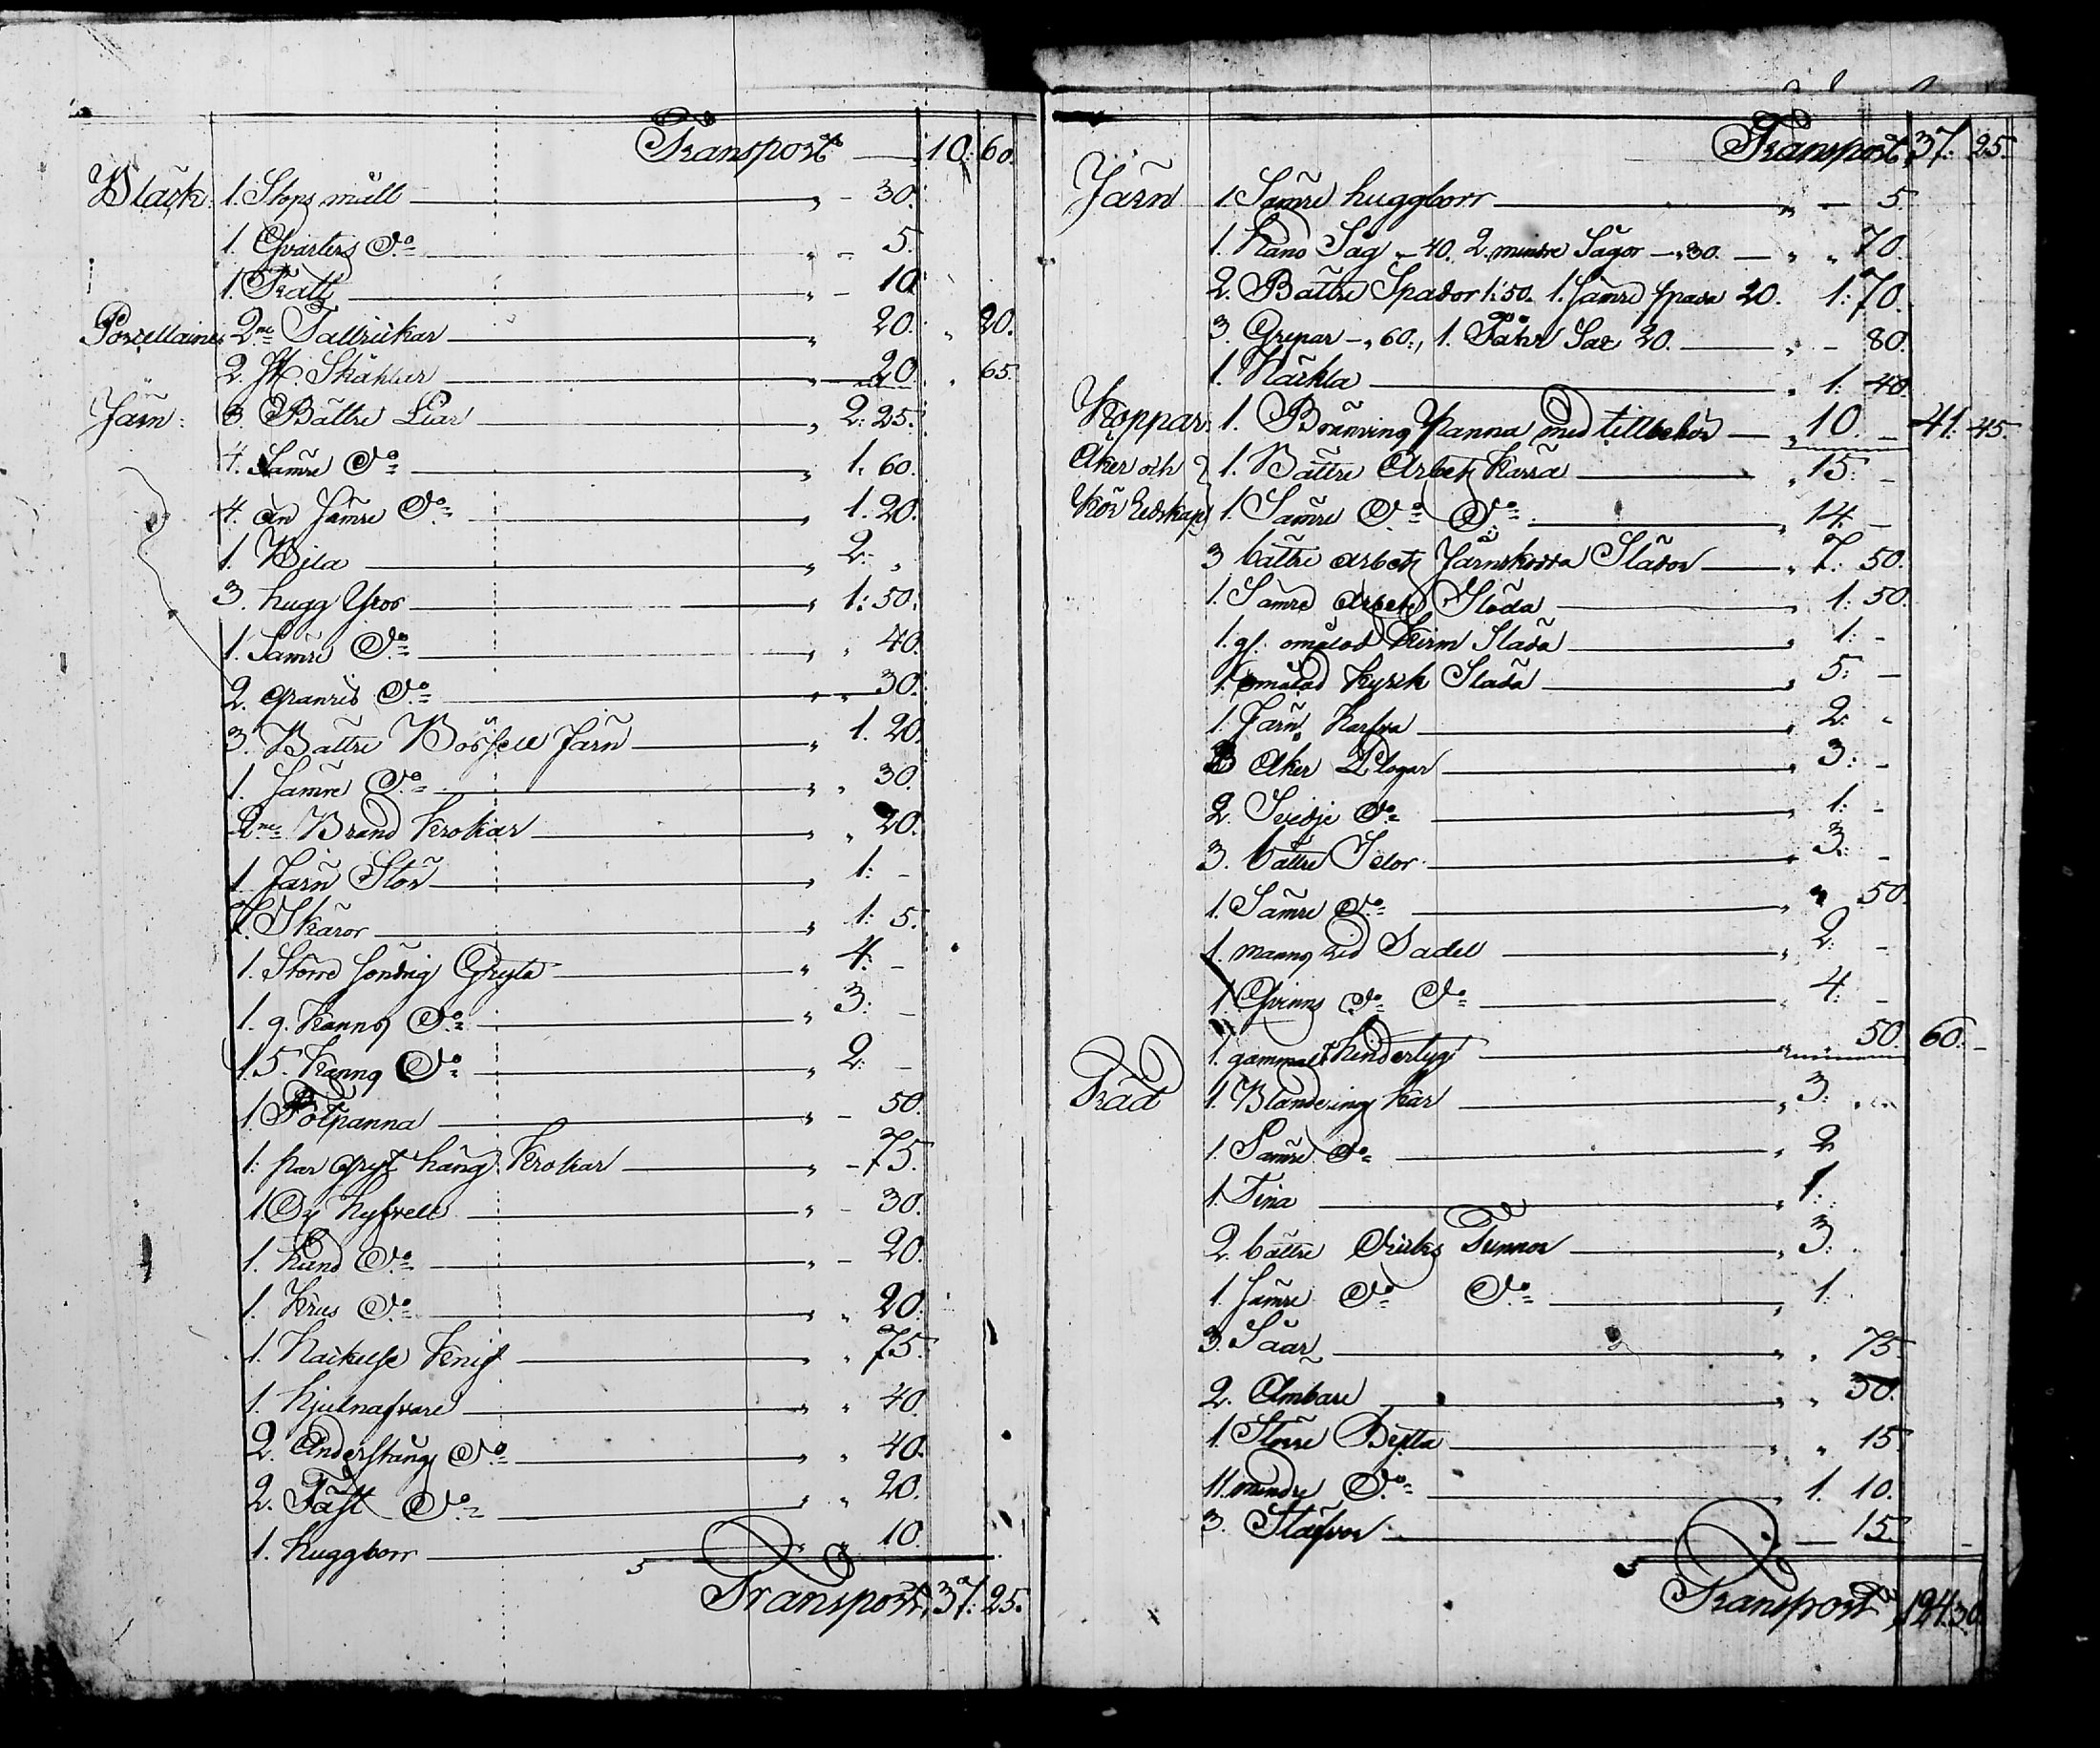 Transport — 10: 60.
Bläck. 1. Stops mått — „ — 30.
1. Qvarters Do — „ — 5.
1. Tratt — „ — 10
Porcellaine 2ne Tallrickar — „ 20. „ 20.
2. St. Skåhlar — „ 20. „ 65.
Järn: 3. Bättre Liar — „ 2: 25.
4. Sämre Do — „ 1. 60.
4. än sämre Do — „ 1. 20.
1. Bila — „ 2: „
3. hugg Yxor — „ 1: 50.
1. Sämre Do — „ „ 40.
2. granris Do — „ „ 30.
3. Bättre Järn — „ 1. 20.
1. sämre Do — „ „ 30.
2ne Brand Krokar — „ „ 20.
1. Järn Stör — „ 1: -
7. Skäror — „ 1: 5.
1. Större söndrig Gryta — „ 4. -
1. 9. Kanns Do — „ 3. -
1. 5. Kanns Do — „ 2: -
1. Potpanna — „ — 50.
1. par Gryt häng. Krokar — „ — 75.
1. Ox hyfvell — „ — 30.
1. hand Do — „ — 20.
1. Krus Do — „ „ 20.
1. Hackelse Knif — „ „ 75.
1. hjulnafvare — „ „ 40.
2. Anderstång Do — „ „ 40.
2. Fast Do — „ „ 20.
1. huggborr — „ „ 10.
Transport, 37: 25.
Transport 37: 25.
Järn 1. Sämre huggborr — „ — 5.
1. Hand Såg „ 40. 2. mindre Sågor — „ 30. — „ „ 70.
2. Bättre Spador 1: 50. 1. sämre spada 20. 1: 70.
3. Grepar — „ 60., 1. Fåhr Sax 20. — „ — 80.
1. Häckla — „ 1: 40.
Koppar. 1. Bränvins Panna med tillbehör — „ 10. — 41: 45.
Åker och 1. Bättre Arbets Kärra — „ 15. -
Kör Redskap 1. Sämre Do Do — „ 14. -
3 bättre arbets Järnskodda Slädor — „ 7: 50.
1. Sämre Arbets Släda — „ 1: 50.
1. gl. omålad Kirm Släda — „ 1: -
1. omålad kyrk Släda — „ 5: -
1. Järn harfva — „ 2: -
3 Åker Plogar — „ 3: -
2. Svedje Do — „ 1: -
3. bättre Selor — „ 3: -
1. Sämre Do — „ „ 50.
1. manns rid Sadel — „ 2: -
1. Qvinns Do Do — „ 4: -
1. gammalt — „ „ 50. 60. -
Träd 1. Blandnings Kar — „ 3:
1. Sämre Do — „ 2
1. Tina — „ 1:
2. bättre Dricks Tunnor — „ 3:
1. sämre Do Do — „ 1:
3. Såar — „ „ 75
2. Ämbare — „ „ 30.
1. Större Bytta — „ „ 15
11. mindre Do — „ 1. 10.
3. Stäfvor — — 15
Transport 124. 30